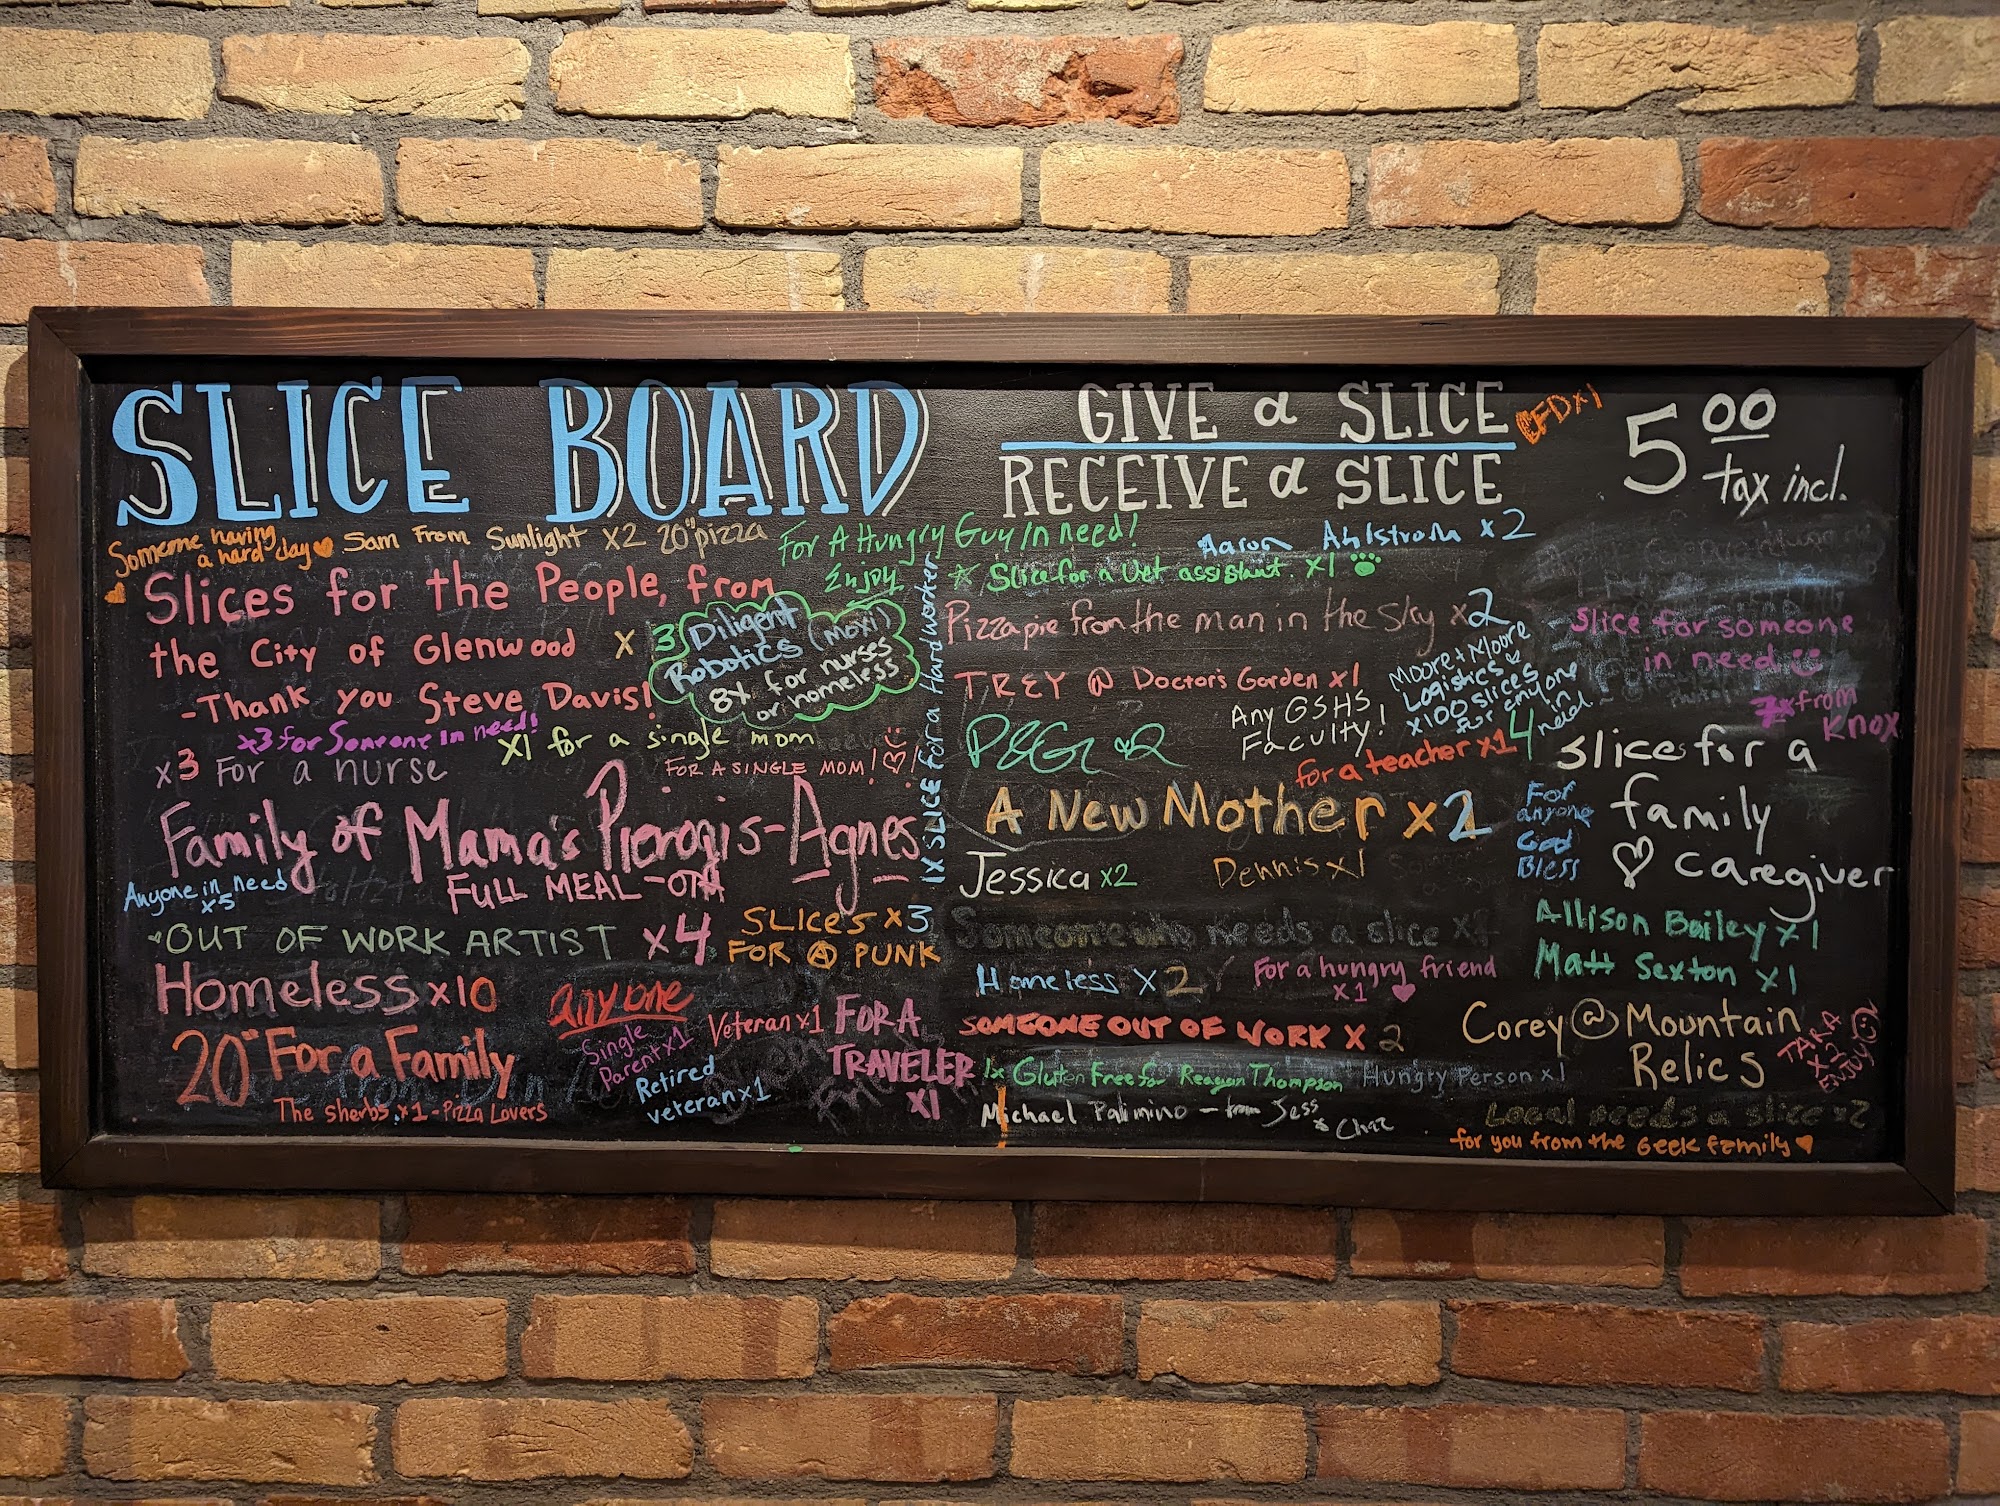 SLICE BOARD
GIVE a SLICE
RECEIVE a SLICE
CFD x1
5.00
tax incl.
Someone having
a hard day
Sam From Sunlight x2 20" pizza
For A Hungry Guy In need!
Enjoy
Aaron Ahlstrom x2
Slice for a Vet assistant. x1
Slices for the People, from
the City of Glenwood x 3
-Thank you Steve Davis!
Diligent
Robotics (moxi)
8x for nurses
or homeless
x3 for Someone in need!
x1 for a single mom
x3 For a nurse
FOR A SINGLE MOM!
1x SLICE for a Hardworker
Family of Mama's Pierogis-Agnes
FULL MEAL-
Anyone in need
x5
OUT OF WORK ARTIST x4
SLICES x3
FOR A PUNK
Homeless x10
anyone
20" For a Family
Single
Parent x1
Veteran x1
Retired
veteran x1
FOR A
TRAVELER
x1
The sherbs x1 - Pizza Lovers
Pizza pie from the man in the sky x2
TREY @ Doctor's Garden x1
Any GSHS
Faculty!
Moore + Moore
Logistics
x100 slices
for anyone
in
need
P&G x2
for a teacher x14
A New Mother x2
Jessica x2
Dennis x1
Someone who needs a slice
Homeless x2
For a hungry friend
x1
SOMEONE OUT OF WORK x 2
1x Gluten Free for Reagan Thompson
Hungry Person x1
Michael Palimino - from Jess
& Chaz
slice for someone
in need
from
Knox
slices for a
family
caregiver
For
anyone
God
Bless
Allison Bailey x1
Matt Sexton x1
Corey @ Mountain
Relics
TARA
x2
ENJOY
Local needs a slice x2
for you from the Geek Family